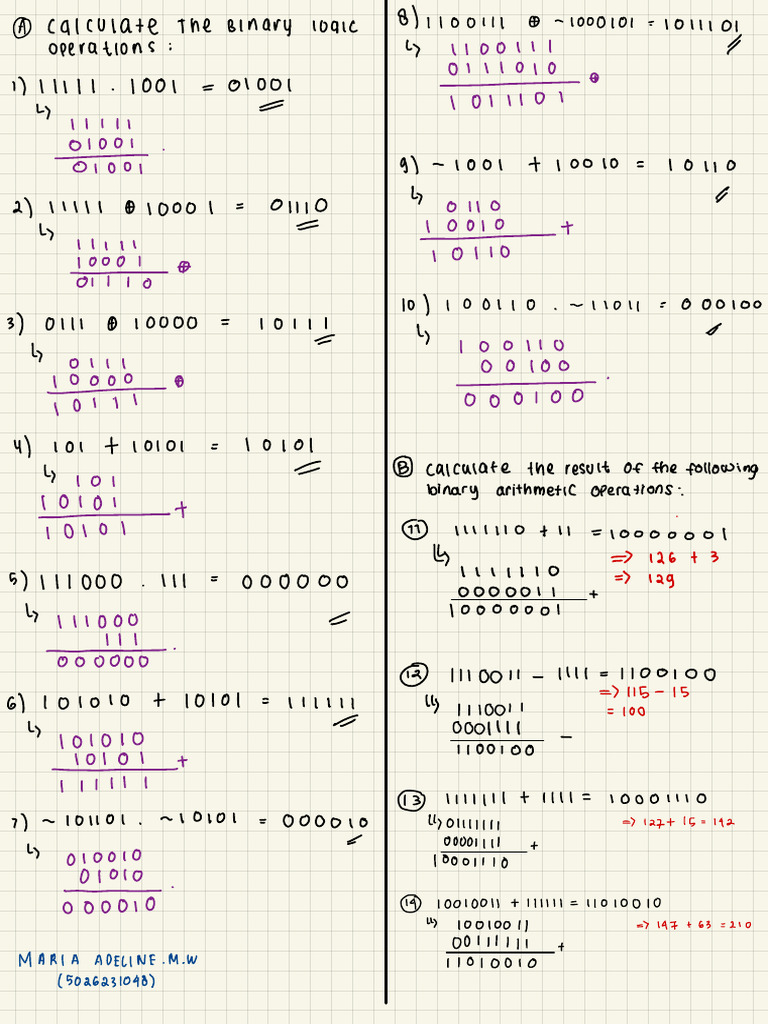 A Calculate the binary logic
operations :
1) 11111 . 1001 = 01001
↳ 11111
01001 .
01001
2) 11111 ⊕ 10001 = 01110
↳ 11111
10001 ⊕
01110
3) 0111 ⊕ 10000 = 10111
↳ 0111
10000 ⊕
10111
4) 101 + 10101 = 10101
↳ 101
10101 +
10101
5) 111000 . 111 = 000000
↳ 111000
111 .
000000
6) 101010 + 10101 = 111111
↳ 101010
10101 +
111111
7) ~101101 . ~10101 = 000010
↳ 010010
01010 .
000010
MARIA ADELINE.M.W
(5026231048)
8) 1100111 ⊕ ~1000101 = 1011101
↳ 1100111
0111010 ⊕
1011101
9) ~1001 + 10010 = 10110
↳ 0110
10010 +
10110
10) 100110 . ~11011 = 000100
↳ 100110
00100 .
000100
B Calculate the result of the following
binary arithmetic operations :
11 1111110 + 11 = 10000001
↳ 1111110 => 126 + 3
0000011 + => 129
10000001
12 1110011 - 1111 = 1100100
↳ 1110011 => 115 - 15
0001111 - = 100
1100100
13 1111111 + 1111 = 10001110
↳ 01111111 => 127 + 15 = 142
00001111 +
10001110
14 10010011 + 111111 = 11010010
↳ 10010011 => 147 + 63 = 210
00111111 +
11010010